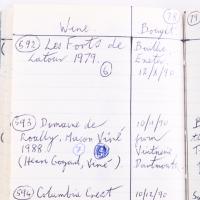 Wine Bought 78 79
592 Les Forts de
Latour 1979.
6
Exeter
12/8/90
593 Domaine de
Roally, Macon Viré
1988
(Henri Goyard, Viré)
10/11/90
from
Vintner
Dartmouth
594 Columbia Crest
10/12/90